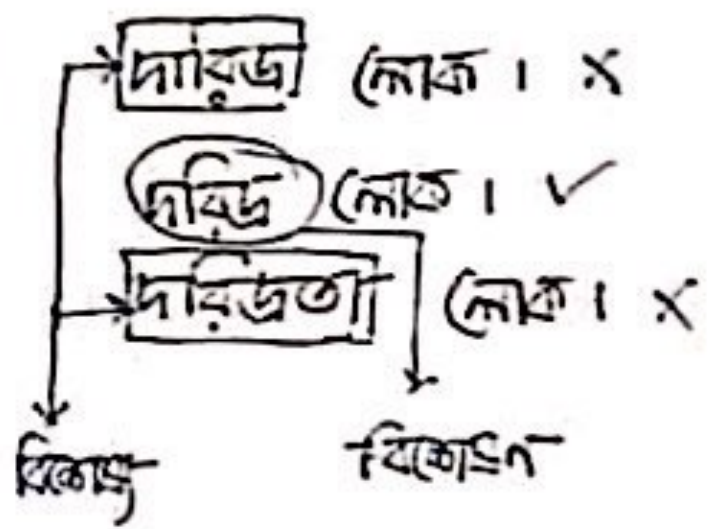 দারিদ্র্য লোক । ×
দরিদ্র লোক । ✓
দরিদ্রতা লোক । ×
বিশেষ্য বিশেষণ